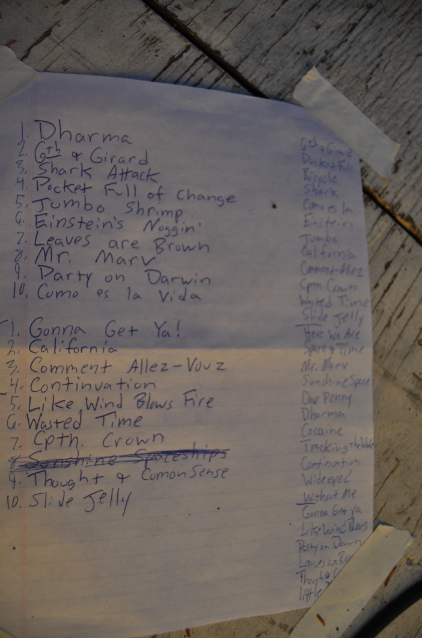 1. Dharma
2. 6th & Girard
3. Shark Attack
4. Pocket Full of Change
5. Jumbo Shrimp
6. Einstein's Noggin'
7. Leaves are Brown
8. Mr. Marv
9. Party on Darwin
10. Como es la Vida
1. Gonna Get Ya!
2. California
3. Comment Allez-Vouz
4. Continuation
5. Like Wind Blows Fire
6. Wasted Time
7. Cpth. Crown
8. Sunshine Spaceships
9. Thought & ComonSense
10. Slide Jelly
6th & Girard
Pocket Full
Bicycle
Shark
Como es la
Einstein
Jumbo
California
Comment Allez
Cpth Crown
Wasted Time
Slide Jelly
Here We Are
Time
Mr. Marv
Sunshine Space
One Penny
Dharma
Cocaine
Continuation
Wide eyed
Without Me
Gonna Get ya
Like Wind Blows
Party on Darwin
Leaves are Bro
Thought &
Little